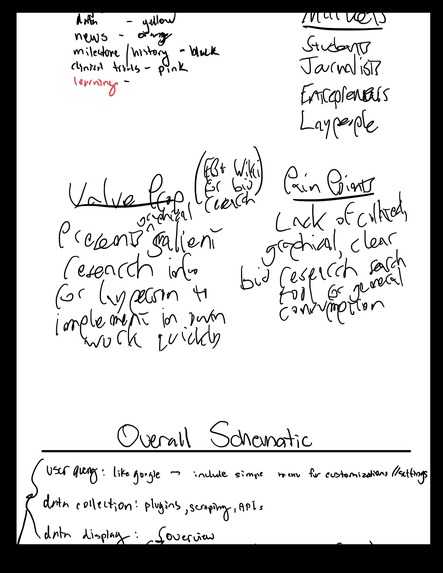 data - yellow
news - orange
milestone/history - black
clinical trials - pink
learning -
Markets
Students
Journalists
Entrepreneurs
Laypeople
Value Prop
(EB+ Wiki
for bio
research)
Presents graphical salient
research info
for layperson to
implement in own
work quickly
Pain Points
Lack of curated,
graphical, clear
bio research search
tool for general
consumption
Overall Schematic
user query: like google → include simple menu for customizations//settings
data collection: plugins, scraping, APIs
data display: overview